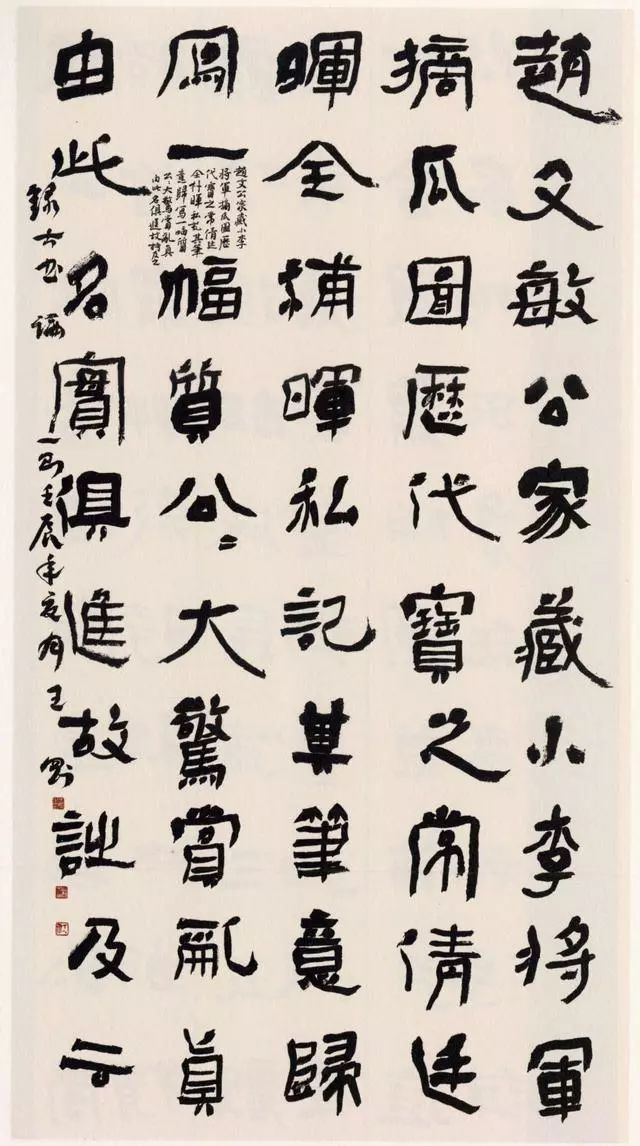 趙文敏公家藏小李將軍
摘瓜圖歷代寶之常倩廷
暉全補暉私記其筆意歸
寫一幅質公〻大驚賞亂真
由此名實俱進故及云
趙文公家藏小李
將軍摘瓜圖歷
代寶之常倩廷
暉私其筆
意歸寫一幅質
公〻大驚賞亂真
由此名俱進故
錄古書論一則壬辰年夏月王